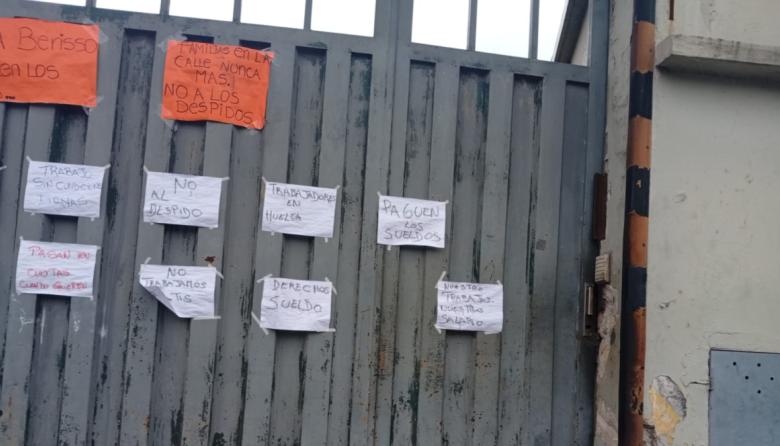 A Berisso
en los
FAMILIAS EN LA
CALLE NUNCA
MAS.
NO A LOS
DESPIDOS
TRABAJO
SIN
DIGNAS
NO
AL
DESPIDO
TRABAJADORES
EN
HUELGA
PAGUEN
LOS
SUELDOS
PAGAN EN
CUOTAS
CUANDO QUIEREN
NO
TRABAJAMOS
DERECHOS
SUELDO
NUESTRO
TRABAJO.
NUESTRO
SALARIO